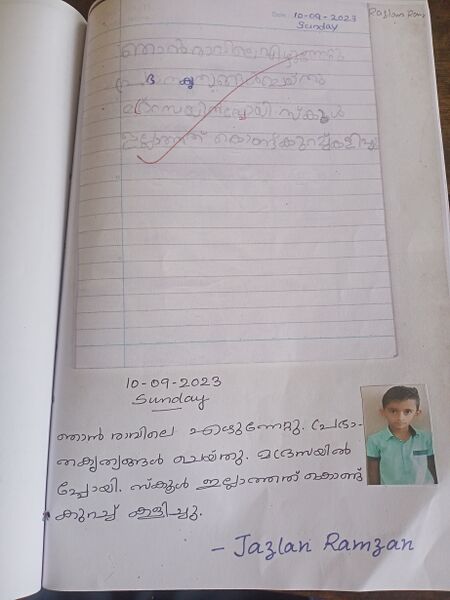 Date 10-09-2023
Sunday
ഞാൻ രാവിലെ എഴുന്നേറ്റു
സ്കൂൾ
ഇല്ലാത്തത് കൊണ്ട് കുറച്ച് കളിച്ചു
10-09-2023
Sunday
ഞാൻ രാവിലെ എഴുന്നേറ്റു. പ്രഭാ-
തകൃത്യങ്ങൾ ചെയ്തു. മദ്രസയിൽ
പ്പോയി. സ്കൂൾ ഇല്ലാത്തത് കൊണ്ട്
കുറച്ച് കളിച്ചു.
- Jazlan Ramzan